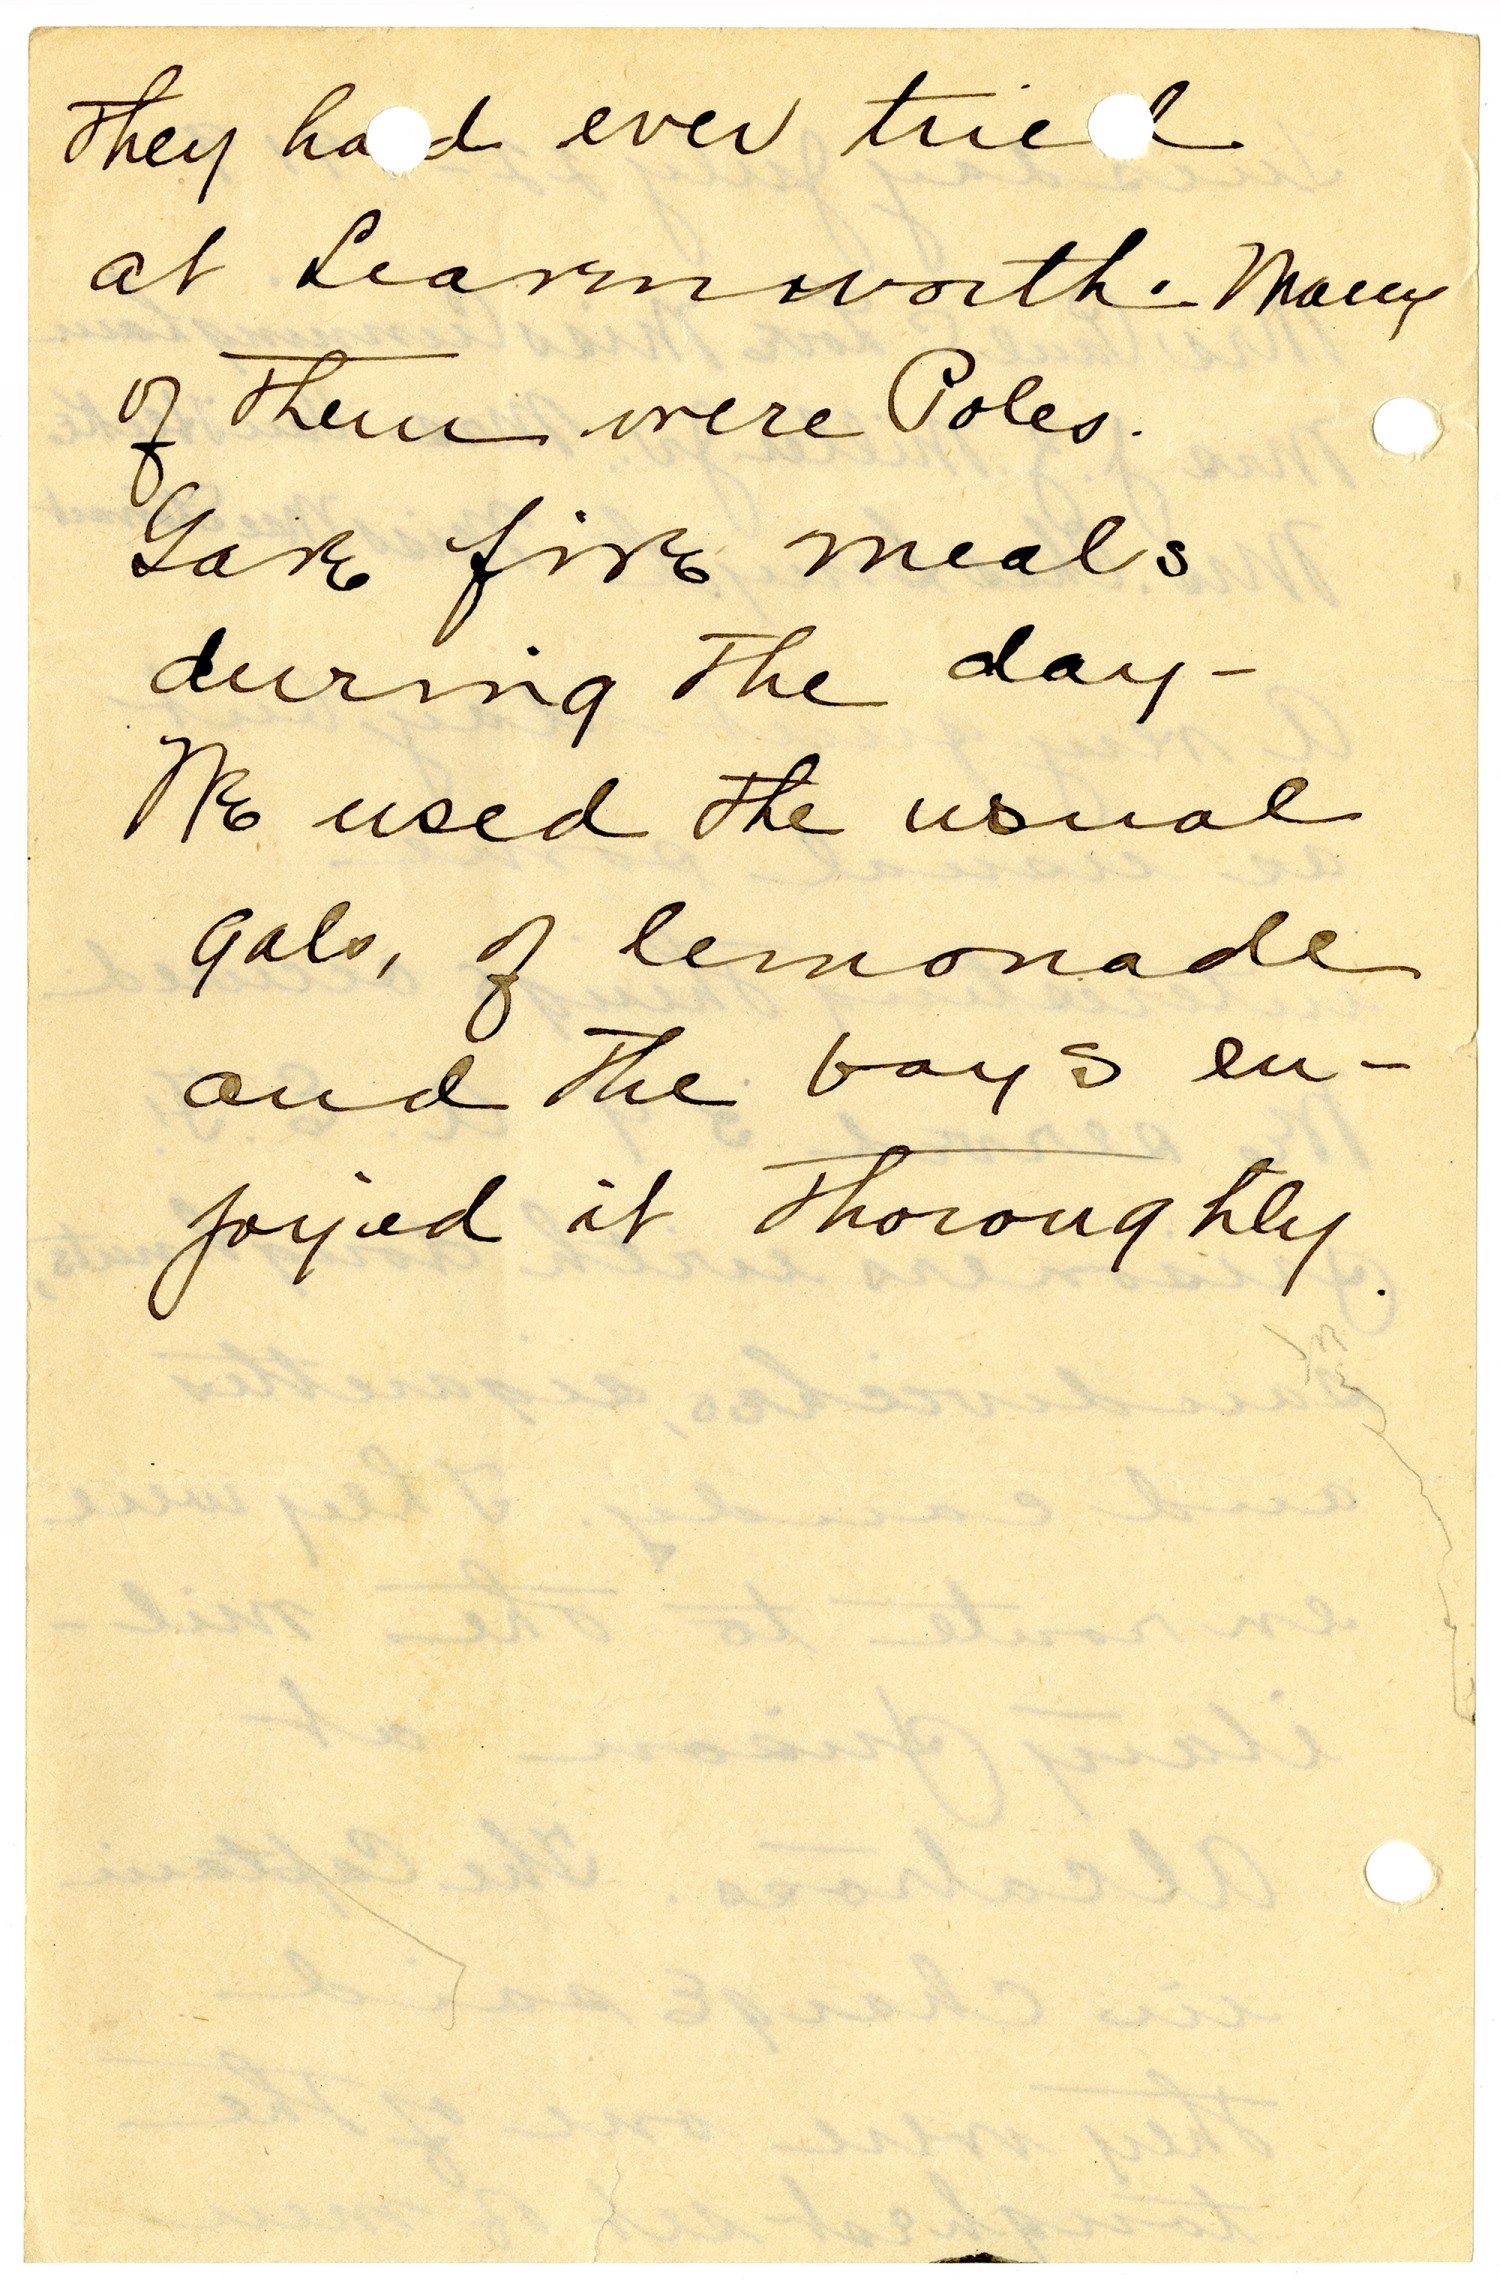 they had ever tried
at Learnworth. Many
of them were Poles.
Gave five meals
during the day-
We used the usual
gals, of lemonade
and the boys en-
joyed it thoroughly.